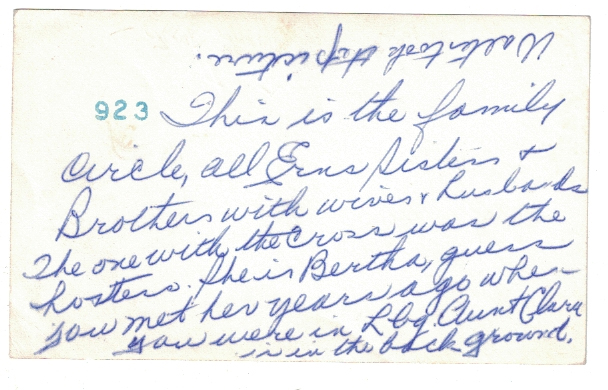 Walter took the picture.
923
This is the family
circle, all Erns sisters +
Brothers with wives + husbands
The one with the cross was the
hostess. She is Bertha, guess
you met her years ago when
you were in Lbg. Aunt Clara
is in the back ground.